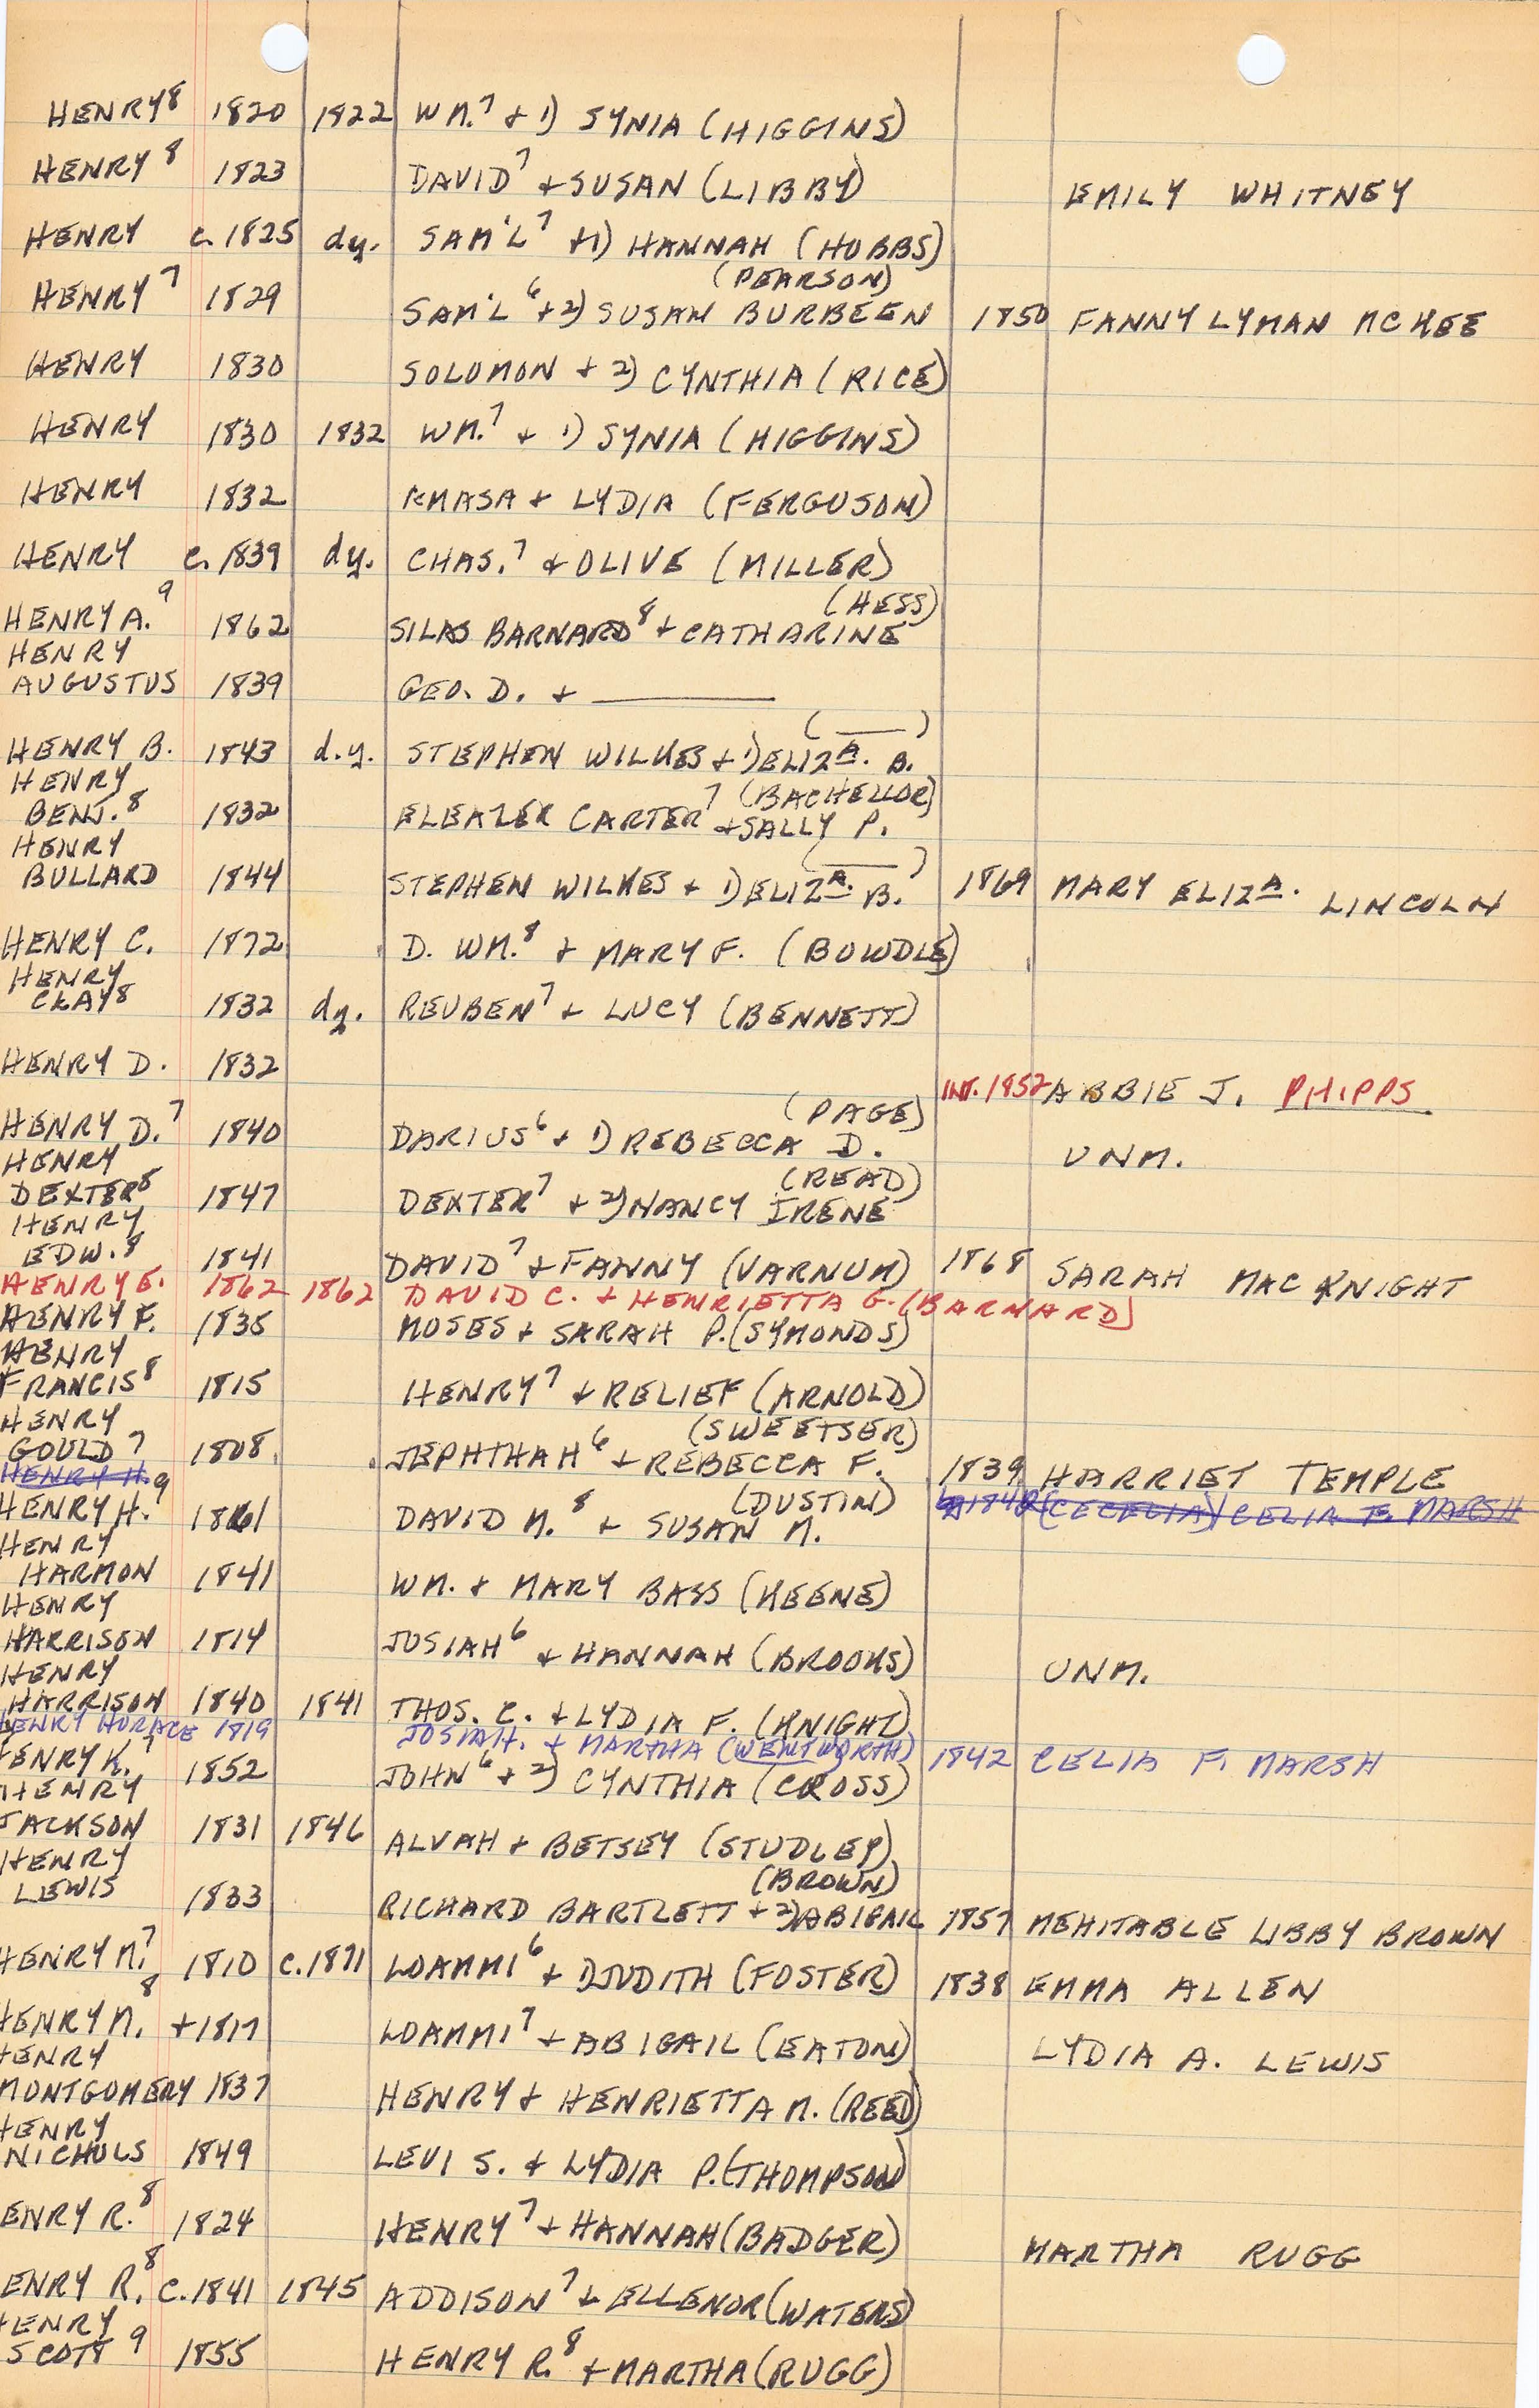 HENRY⁸ 1820 1822 WM.⁷ + 1) SYNIA (HIGGINS)
HENRY⁸ 1823 DAVID⁷ + SUSAN (LIBBY) EMILY WHITNEY
HENRY c. 1825 dy. SAM'L⁷ + 1) HANNAH (HOBBS)
(PEARSON)
HENRY⁷ 1829 SAM'L⁶ + 2) SUSAN BURBEEN 1850 FANNY LYMAN MCKEE
HENRY 1830 SOLOMON + 2) CYNTHIA (RICE)
HENRY 1830 1832 WM.⁷ + 1) SYNIA (HIGGINS)
HENRY 1832 AMASA + LYDIA (FERGUSON)
HENRY c. 1839 dy. CHAS.⁷ + OLIVE (MILLER)
(HESS)
HENRY A.⁹ 1862 SILAS BARNARD⁸ + CATHARINE
HENRY
AUGUSTUS 1839 GEO. D. + ______
(___)
HENRY B. 1843 d.y. STEPHEN WILKES + 1) ELIZA. B.
HENRY (BACHELLOR)
BENJ.⁸ 1832 ELEAZER CARTER⁷ + SALLY P.
HENRY (___)
BULLARD 1844 STEPHEN WILKES + 1) ELIZA. B. 1869 MARY ELIZA. LINCOLN
HENRY C. 1872 D. WM.⁸ + MARY F. (BOWDLE)
HENRY
CLAY⁸ 1832 dy. REUBEN⁷ + LUCY (BENNETT)
HENRY D. 1832 INT. 1852 ABBIE J. PHIPPS
(PAGE)
HENRY D.⁷ 1840 DARIUS⁶ + 1) REBECCA D. UNM.
HENRY (READ)
DEXTER⁸ 1847 DEXTER⁷ + 2) NANCY IRENE
HENRY
EDW.⁸ 1841 DAVID⁷ + FANNY (VARNUM) 1868 SARAH MAC KNIGHT
HENRY E. 1862 1862 DAVID C. + HENRIETTA G. (BARNARD)
HENRY F. 1835 MOSES + SARAH P. (SYMONDS)
HENRY
FRANCIS⁸ 1815 HENRY⁷ + RELIEF (ARNOLD)
HENRY (SWEETSER)
GOULD⁷ 1808 JEPHTHAH⁶ + REBECCA F. 1839 HARRIET TEMPLE
HENRY H. (DUSTIN) 1842 (CECELIA) CELIA F. MARSH
HENRY H.⁹ 1861 DAVID M.⁸ + SUSAN M.
HENRY
HARMON 1841 WM. + MARY BASS (KEENE)
HENRY
HARRISON 1814 JOSIAH⁶ + HANNAH (BROOKS) UNM.
HENRY
HARRISON 1840 1841 THOS. C. + LYDIA F. (KNIGHT)
HENRY HORACE 1819 JOSIAH. + MARTHA (WENTWORTH) 1842 CELIA F. MARSH
HENRY K.⁷ 1852 JOHN⁶ + 2) CYNTHIA (CROSS)
HENRY
JACKSON 1831 1846 ALVAH + BETSEY (STUDLEY)
HENRY (BROWN)
LEWIS 1833 RICHARD BARTLETT + 2) ABIGAIL 1857 MEHITABLE LIBBY BROWN
HENRY M.⁷ 1810 c. 1871 LOAMMI⁶ + 1) JUDITH (FOSTER) 1838 EMMA ALLEN
HENRY M.⁸ +1817 LOAMMI⁷ + ABIGAIL (EATON) LYDIA A. LEWIS
HENRY
MONTGOMERY 1837 HENRY + HENRIETTA M. (REED)
HENRY
NICHOLS 1849 LEVI S. + LYDIA P. (THOMPSON)
ENRY R.⁸ 1824 HENRY⁷ + HANNAH (BADGER) MARTHA RUGG
ENRY R.⁸ c. 1841 1845 ADDISON⁷ + ELLENOR (WATERS)
HENRY
SCOTT⁹ 1855 HENRY R.⁸ + MARTHA (RUGG)